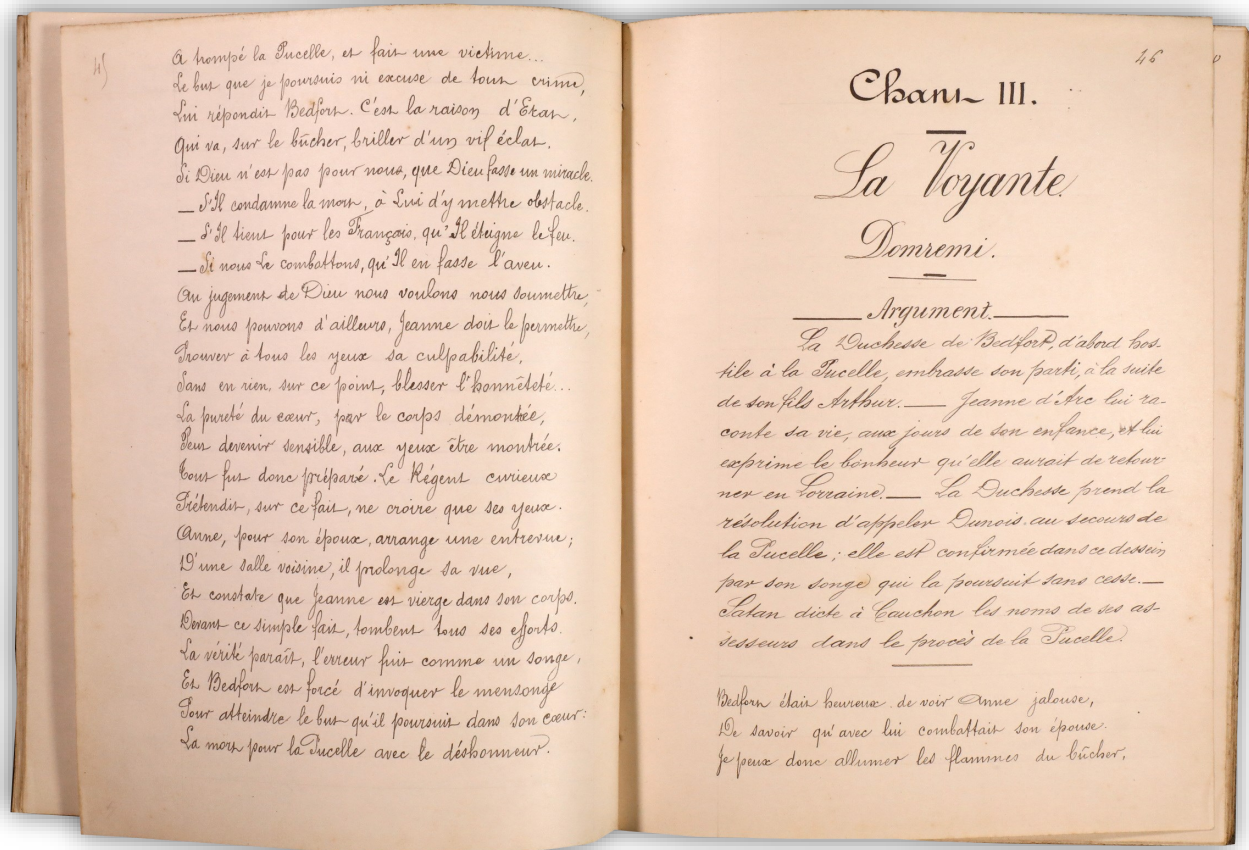 45
A trompé la Pucelle, et fait une victime...
Le but que je poursuis m'excuse de tout crime,
Lui répondit Bedfort. C'est la raison d'Etat,
Qui va, sur le bûcher, briller d'un vif éclat.
Si Dieu n'est pas pour nous, que Dieu fasse un miracle.
— S'Il condamne la mort, à Lui d'y mettre obstacle.
— S'Il tient pour les Français, qu'Il éteigne le feu.
— Si nous Le combattons, qu'Il en fasse l'aveu.
Au jugement de Dieu nous voulons nous soumettre,
Et nous pouvons d'ailleurs, Jeanne doit le permettre,
Prouver à tous les yeux sa culpabilité,
Sans en rien, sur ce point, blesser l'honnêteté...
La pureté du cœur, par le corps démontrée,
Peut devenir sensible, aux yeux être montrée.
Tout fut donc préparé. Le Régent curieux
Prétendit, sur ce fait, ne croire que ses yeux.
Anne, pour son époux, arrange une entrevue;
D'une salle voisine, il prolonge sa vue,
Et constate que Jeanne est vierge dans son corps.
Devant ce simple fait, tombent tous ses efforts.
La vérité paraît, l'erreur fuit comme un songe,
Et Bedfort est forcé d'invoquer le mensonge
Pour atteindre le but qu'il poursuit dans son cœur:
La mort pour la Pucelle avec le déshonneur.
46
Chant III.
La Voyante.
Domremi.
Argument.
La Duchesse de Bedfort, d'abord hos-
tile à la Pucelle, embrasse son parti, à la suite
de son fils Arthur. — Jeanne d'Arc lui ra-
conte sa vie, aux jours de son enfance, et lui
exprime le bonheur qu'elle aurait de retour-
ner en Lorraine. — La Duchesse prend la
résolution d'appeler Dunois au secours de
la Pucelle; elle est confirmée dans ce dessein
par son songe qui la poursuit sans cesse. —
Satan dicte à Cauchon les noms de ses as-
sesseurs dans le procès de la Pucelle.
Bedfort était heureux de voir Anne jalouse,
De savoir qu'avec lui combattait son épouse.
Je peux donc allumer les flammes du bûcher,